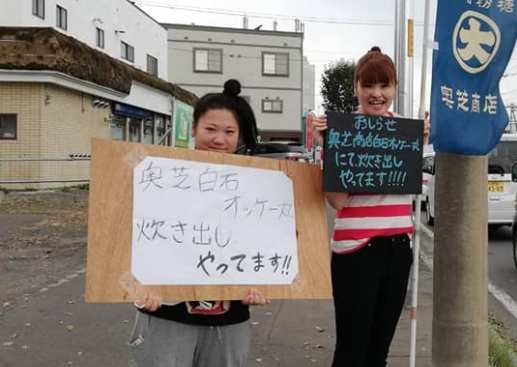 奥芝白石
オッケー丸
炊き出し
やってます!!
おしらせ
奥芝商店白石オッケー丸
にて炊き出し
やってます!!!!
大
奥芝商店